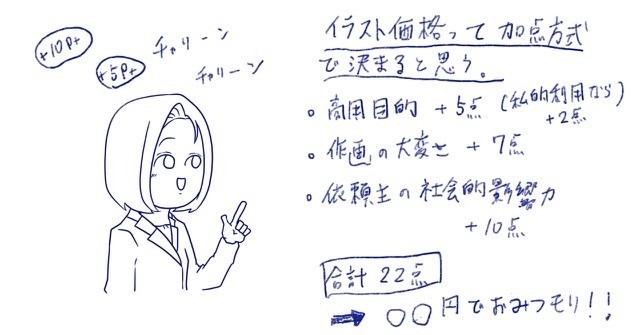 +10P+
+5P+
チャリーン
チャリーン
イラスト価格って 加点方式
で決まると思う。
• 商用目的 +5点 (私的利用なら
+2点)
• 作画の大変さ +7点
• 依頼主の社会的影響力
+10点
合計 22点
➡ ○○円でおみつモリ!!